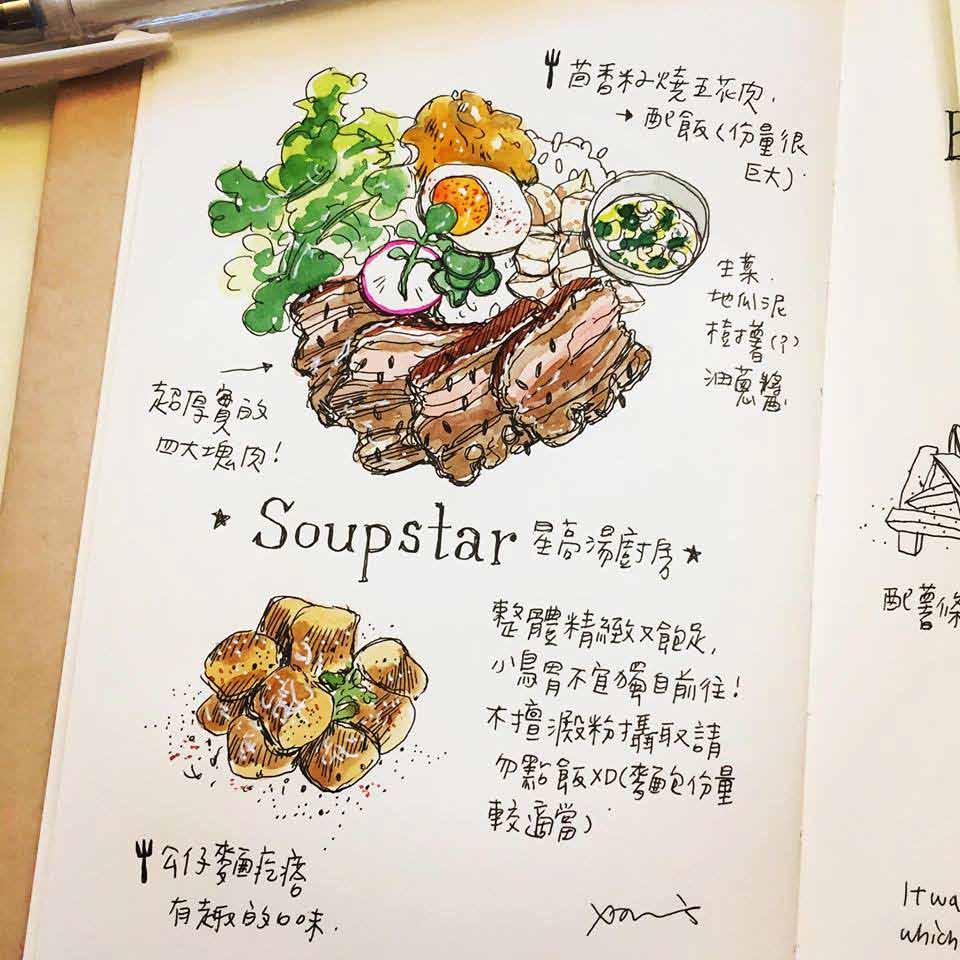 茴香籽燒五花肉.
→ 配飯(份量很
巨大)
生菜.
地瓜泥
樹薯(?)
油蔥醬
超厚實的
四大塊肉!
Soupstar 星高湯廚房
整體精緻又飽足,
小鳥胃不宜獨自前往!
不擅澱粉攝取請
勿點飯XD(麵包份量
較適當)
公仔麵疙瘩
有趣的口味.
配薯條
It wa
which